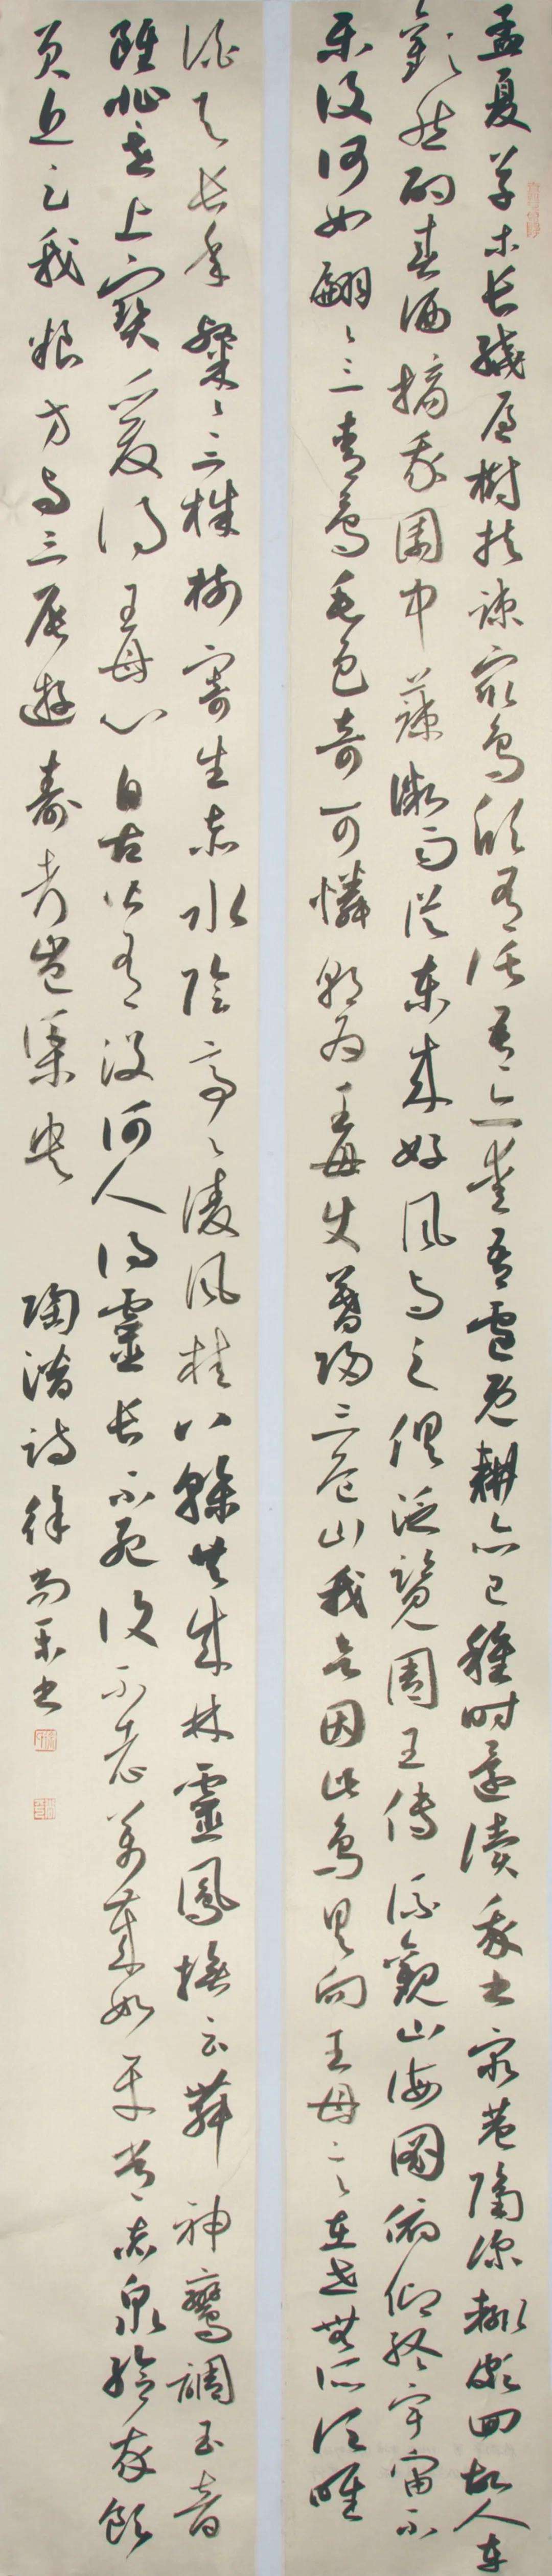 孟夏草木長繞屋樹扶疎衆鳥欣有託吾亦愛吾廬既耕亦已種時還讀我書窮巷隔深轍頗回故人車
歡然酌春酒摘我園中蔬微雨從東來好風與之俱泛覽周王傳流觀山海圖俯仰終宇宙不
樂復何如翩〻三青鳥毛色奇可憐朝為王母使暮歸三危山我欲因此鳥具向王母言在世無所須唯
酒與長年粲〻三株樹寄生赤水陰亭〻凌風桂八榦共成林靈鳳撫雲舞神鸞調玉音
雖非世上寶爰得王母心自古皆有沒何人得靈長不死復不老萬歲如平常赤泉給我飲
員丘足我糧方與三辰遊壽考豈渠央 陶潛詩徐尚樂書